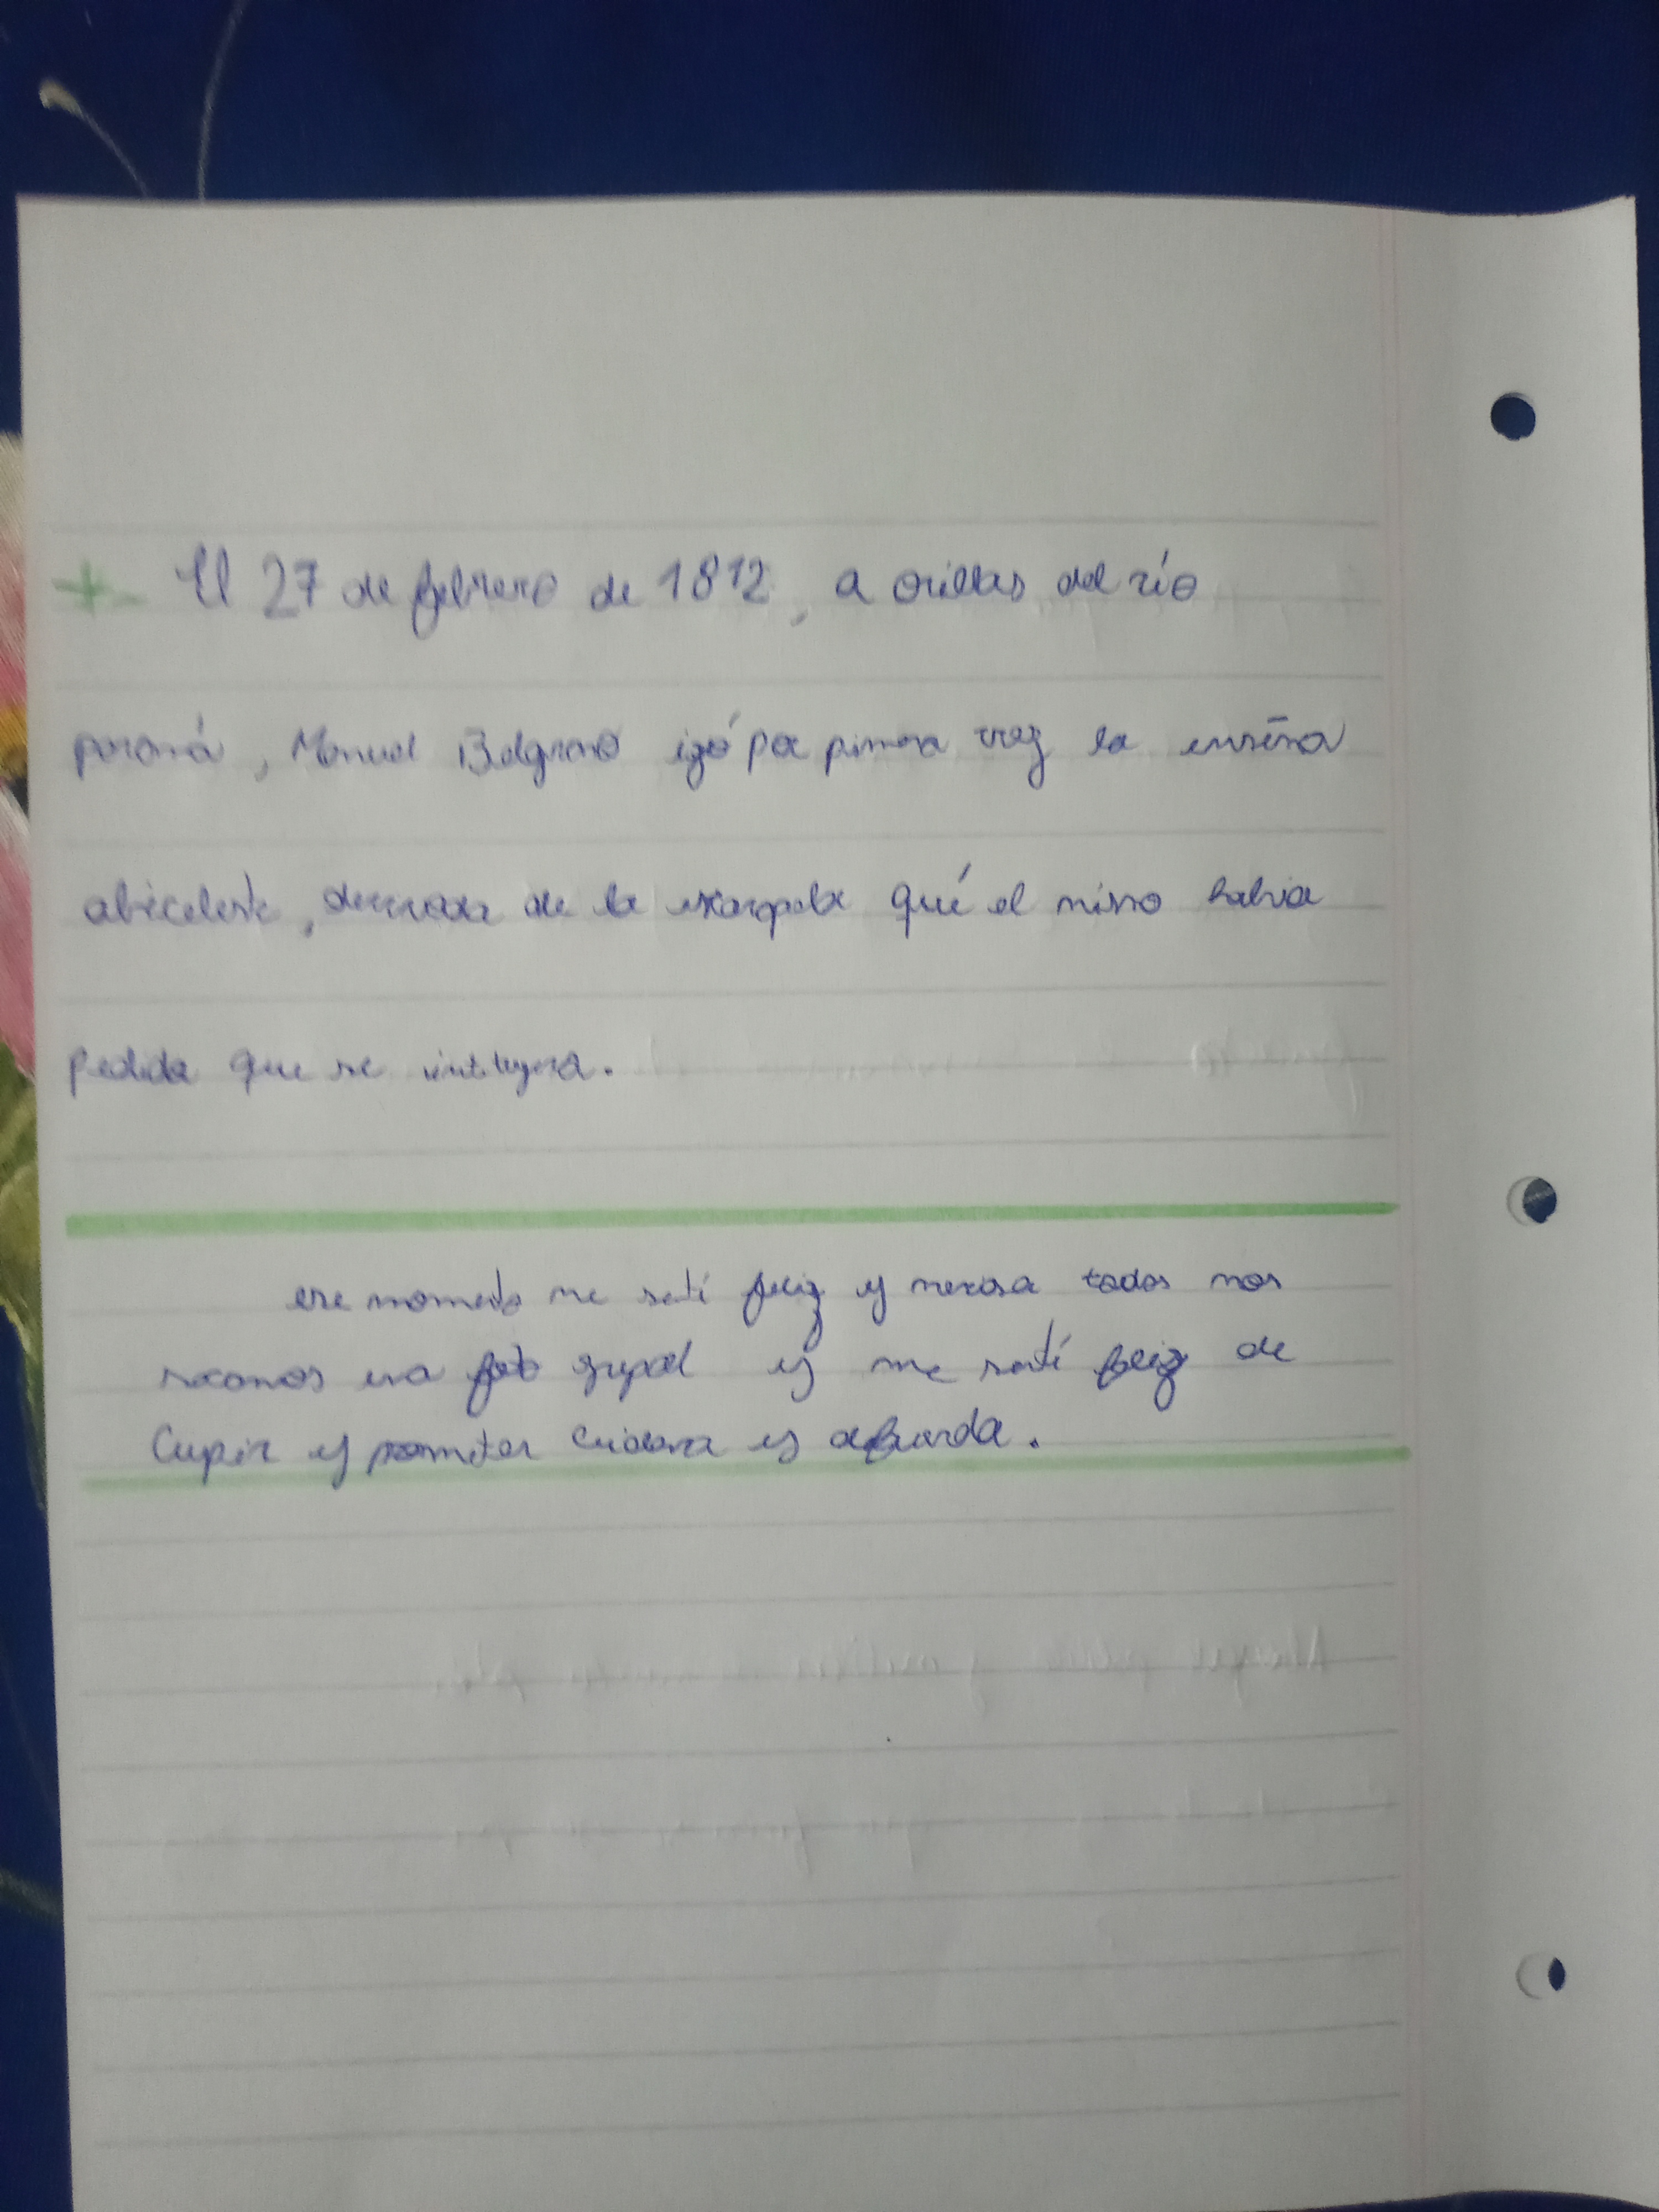 El 27 de febrero de 1812, a orillas del río
paraná, Manuel Belgrano izó por primera vez la enseña
albiceleste, de la escarapela qué el mismo habia
pedida que se
ese momento me sentí feliz y nerviosa todos nos
sacamos una foto grupal y me sentí feliz de
y prometer cuidarla y